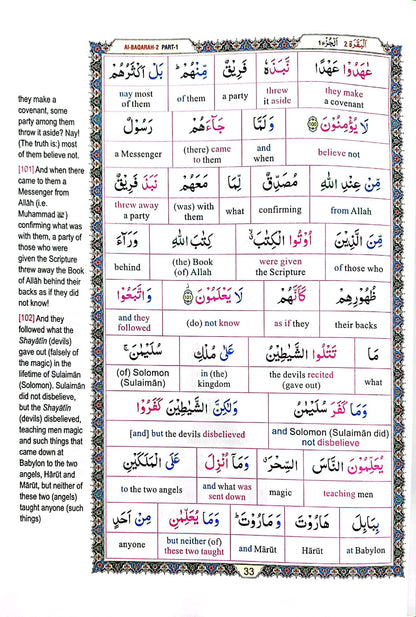 AI-BAQARAH-2 PART-1
البقرة 2 الجزء 1
they make a
covenant, some
party among them
throw it aside? Nay!
(The truth is:) most
of them believe not.
[101] And when there
came to them a
Messenger from
Allâh (i.e.
Muhammad ﷺ)
confirming what was
with them, a party of
those who were
given the Scripture
threw away the Book
of Allâh behind their
backs as if they did
not know!
[102] And they
followed what the
Shayâtîn (devils)
gave out (falsely of
the magic) in the
lifetime of Sulaimân
(Solomon). Sulaimân
did not disbelieve,
but the Shayâtîn
(devils) disbelieved,
teaching men magic
and such things that
came down at
Babylon to the two
angels, Hârût and
Mârût, but neither of
these two (angels)
taught anyone (such
things)
عٰهَدُوْا عَهْدًا نَّبَذَهٗ فَرِيْقٌ مِّنْهُمْ ؕ بَلْ اَكْثَرُهُمْ
nay most of them | of them | a party | threw it aside | they make a covenant
لَا يُؤْمِنُوْنَ ۝۱۰۰ وَلَمَّا جَآءَهُمْ رَسُوْلٌ
a Messenger | (there) came to them | and when | believe not
مِّنْ عِنْدِ اللّٰهِ مُصَدِّقٌ لِّمَا مَعَهُمْ نَبَذَ فَرِيْقٌ
threw away a party | (was) with them | what | confirming | from Allah
مِّنَ الَّذِيْنَ اُوْتُوا الْكِتٰبَ ۙ كِتٰبَ اللّٰهِ وَرَآءَ
behind | (the) Book (of) Allah | were given the Scripture | of those who
ظُهُوْرِهِمْ كَاَنَّهُمْ لَا يَعْلَمُوْنَ ۝۱۰۱ وَاتَّبَعُوْا
and they followed | (do) not know | as if they | their backs
مَا تَتْلُوا الشَّيٰطِيْنُ عَلٰى مُلْكِ سُلَيْمٰنَ ۚ
(of) Solomon (Sulaimân) | in (the) kingdom | the devils recited (gave out) | what
وَمَا كَفَرَ سُلَيْمٰنُ وَلٰكِنَّ الشَّيٰطِيْنَ كَفَرُوْا
[and] but the devils disbelieved | and Solomon (Sulaimân did) not disbelieve
يُعَلِّمُوْنَ النَّاسَ السِّحْرَ ۗ وَمَآ اُنْزِلَ عَلَى الْمَلَكَيْنِ
to the two angels | and what was sent down | magic | teaching men
بِبَابِلَ هَارُوْتَ وَمَارُوْتَ ؕ وَمَا يُعَلِّمٰنِ مِنْ اَحَدٍ
anyone | but neither (of) these two taught | and Mârût | Hârût | at Babylon
33